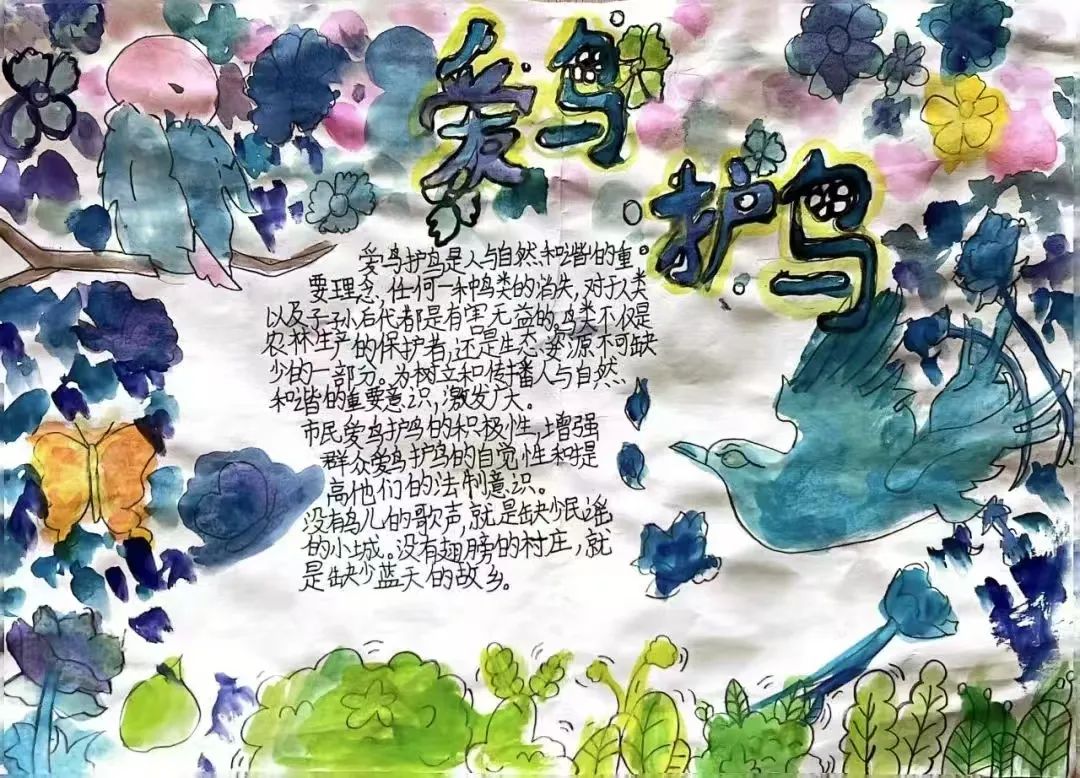 爱鸟
护鸟
爱鸟护鸟是人与自然和谐的重
要理念，任何一种鸟类的消失，对于人类
以及子子孙后代都是有害无益的。鸟类不仅是
农林生产的保护者，还是生态资源不可缺
少的一部分。为树立和传播人与自然
和谐的重要意识，激发广大。
市民爱鸟护鸟的积极性，增强
群众爱鸟护鸟的自觉性和提
高他们的法制意识。
没有鸟儿的歌声，就是缺少民谣
的小城。没有翅膀的村庄，就
是缺少蓝天的故乡。